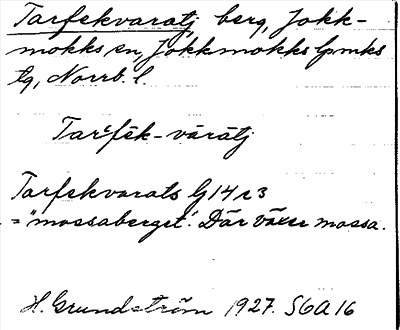 Tarfekvaratj, berg, Jokk-
mokks sn, Jokkmokks lpmks
tg, Norrb. l.
Tarfēk-vārātj
Tarfekvarats G 14 r 3
= "mossaberget". Där växer mossa.
H. Grundström 1927. S6A16